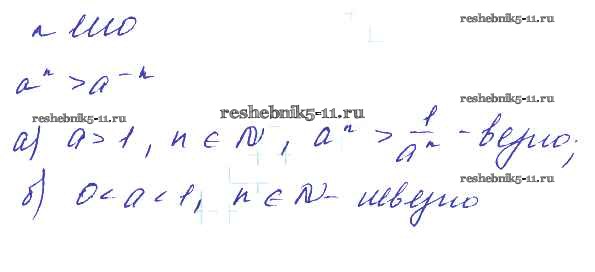 n 1110
reshebnik5-11.ru
aⁿ > a⁻ⁿ
reshebnik5-11.ru
reshebnik5-11.ru
reshebnik5-11.ru
а) a > 1, n ∈ N, aⁿ > 1/aⁿ - верно;
reshebnik5-11.ru
б) 0 < a < 1, n ∈ N - неверно